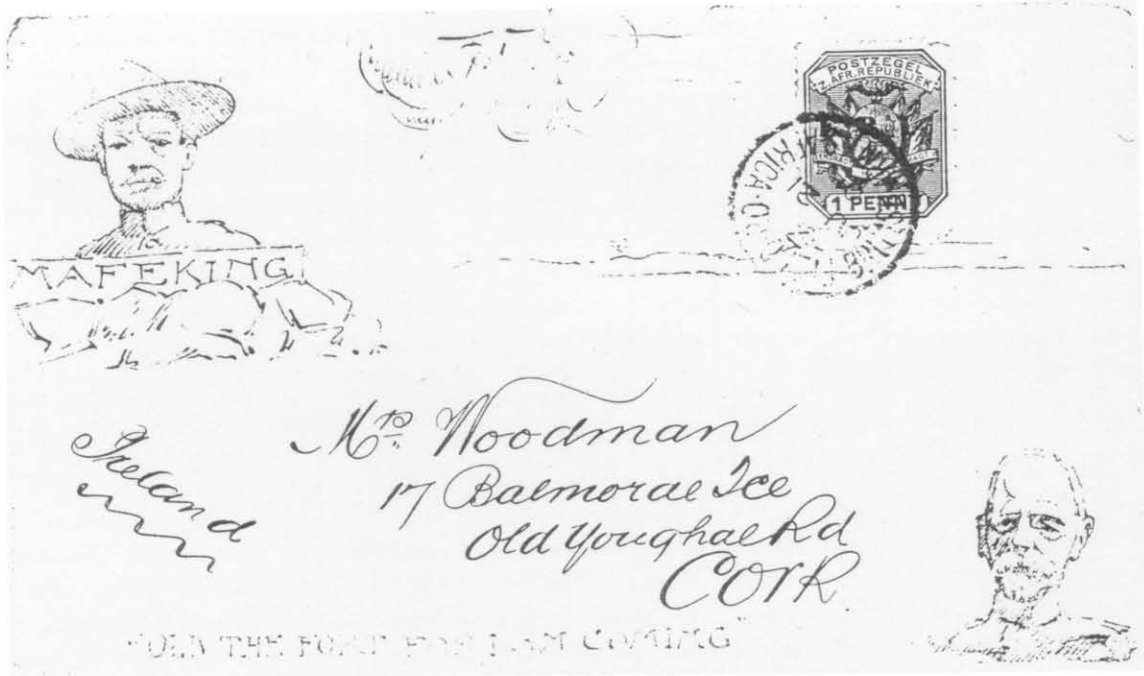 POSTZEGEL
Z. AFR. REPUBLIEK
1 PENNY
AFRICA
MAFEKING
Mrs. Woodman
17 Balmoral Tce
Old Youghal Rd
Cork.
Ireland
THE FORT FOR I AM COMING"